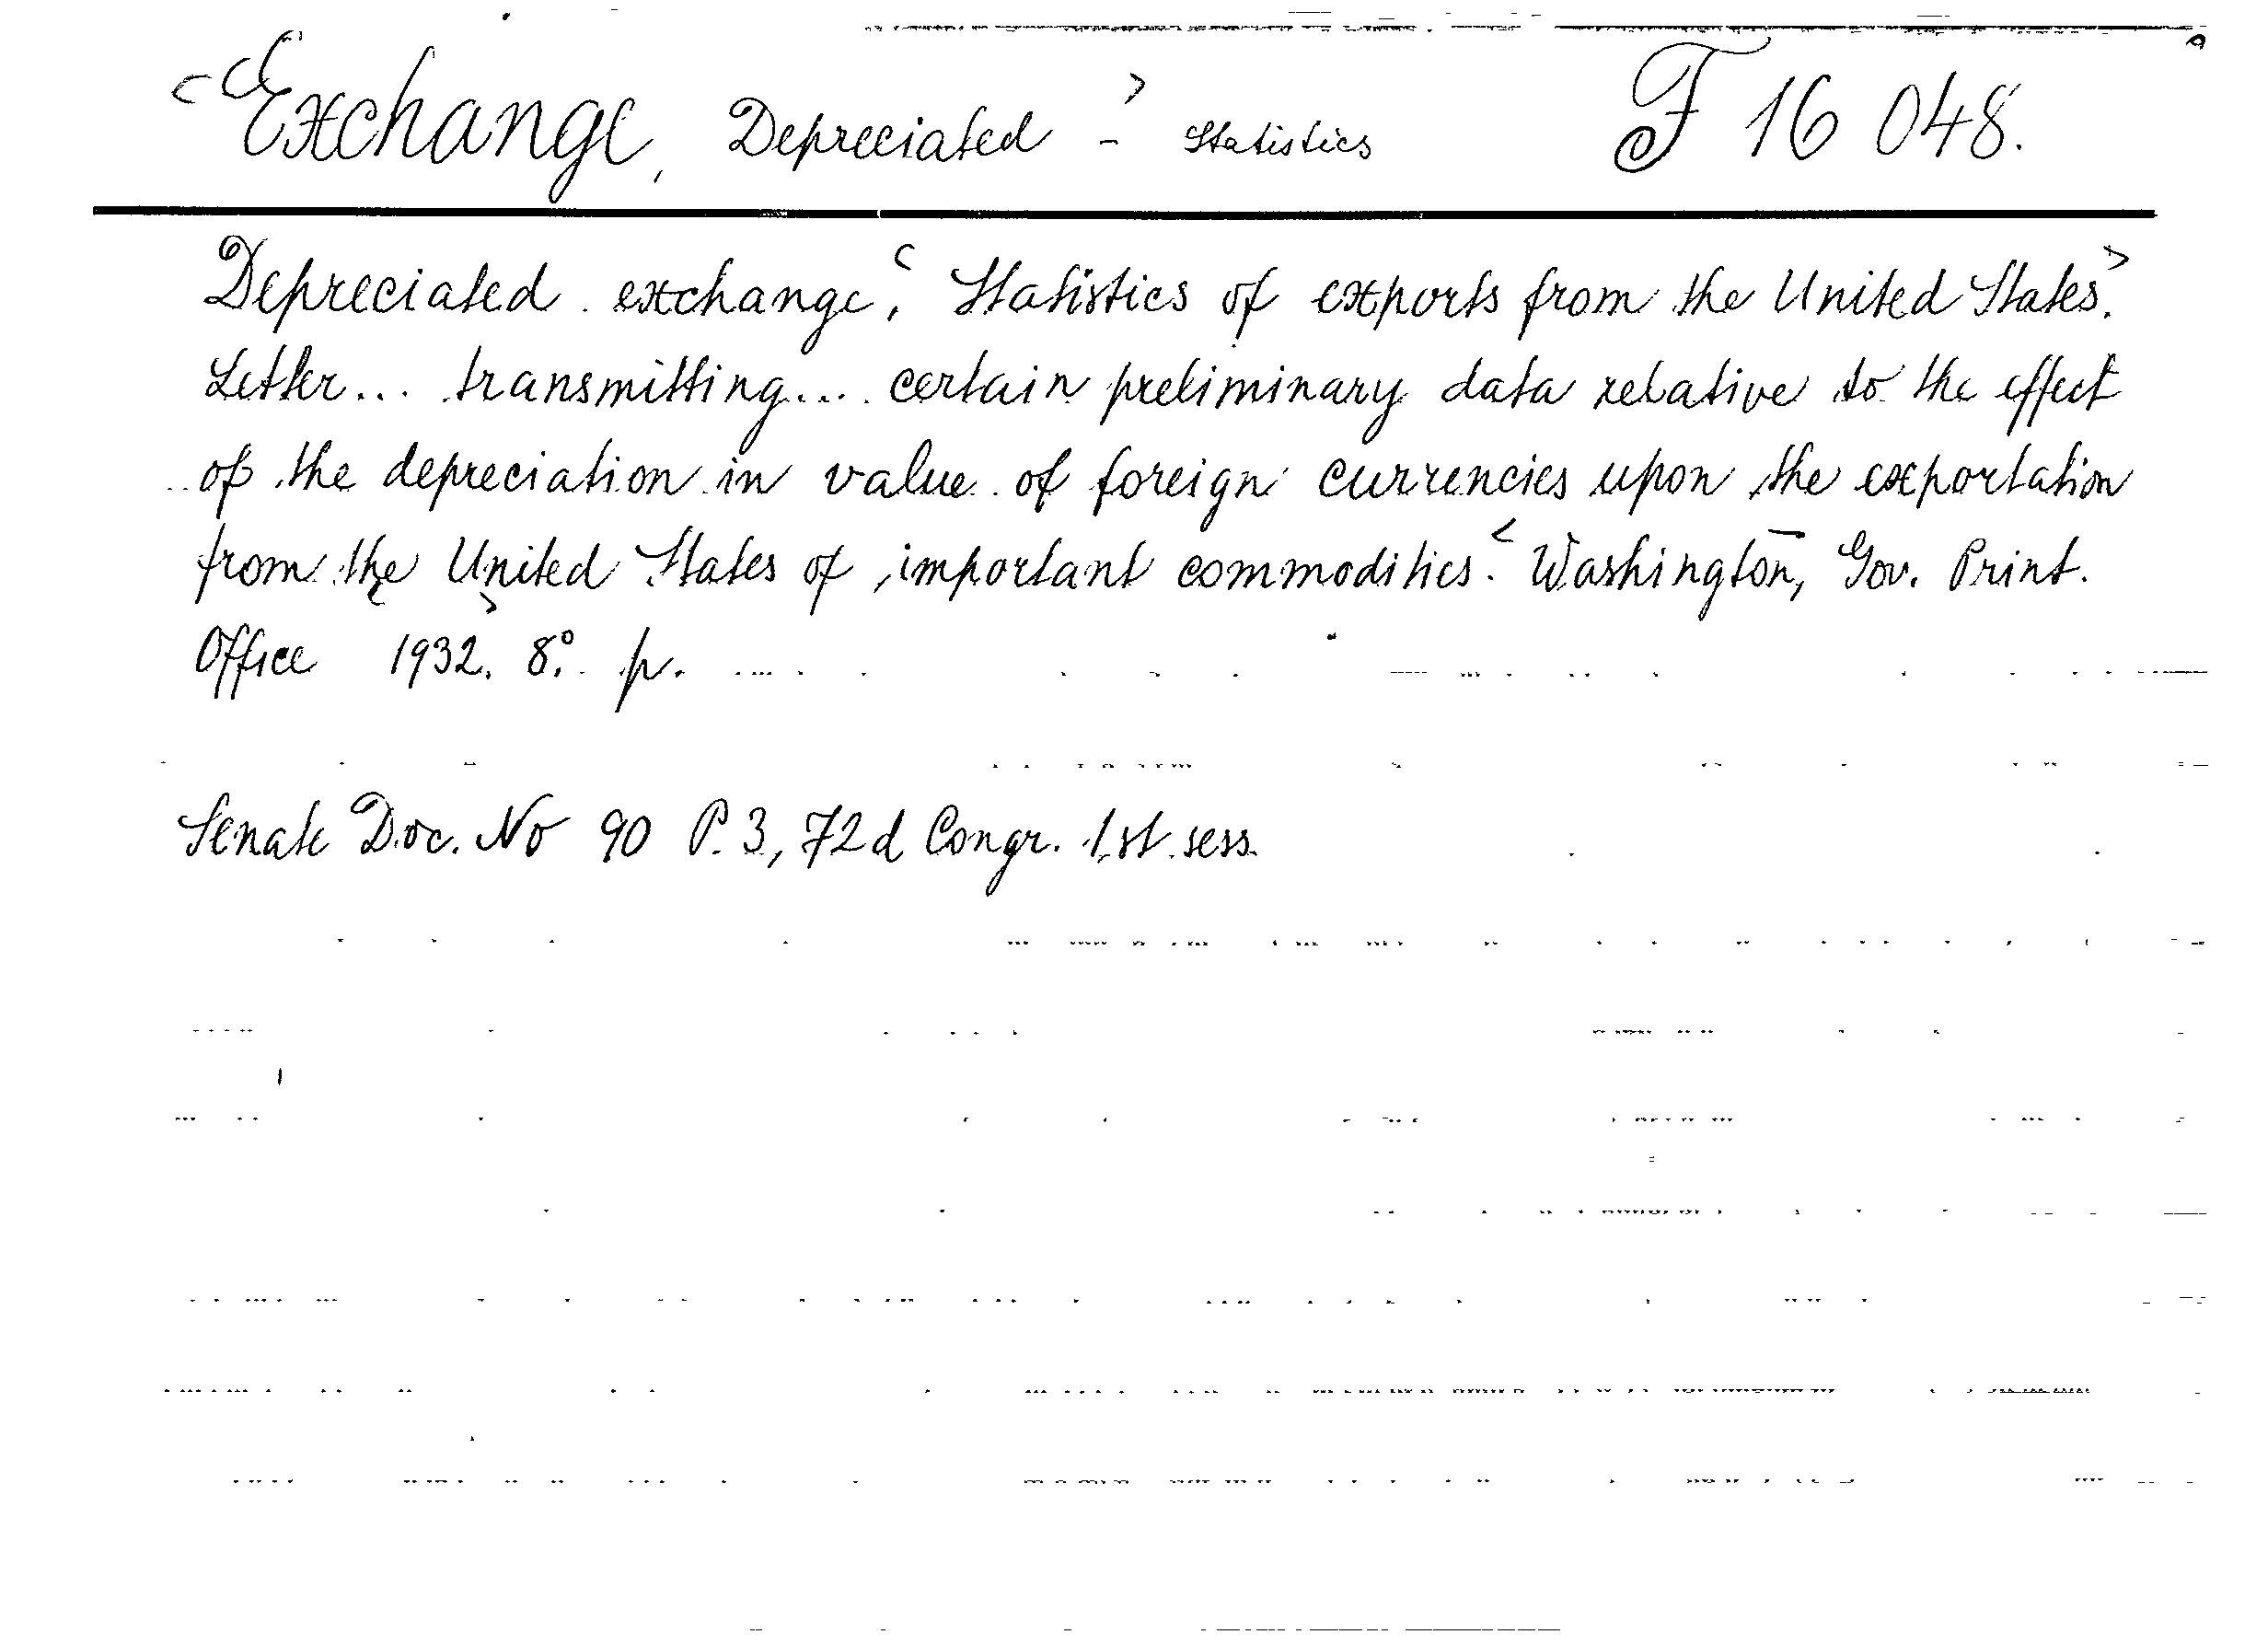 <Exchange, Depreciated -> Statistics F 16 048.
Depreciated exchange, <Statistics of exports from the United States>.
Letter... transmitting.... certain preliminary data relative to the effect
of the depreciation in value of foreign currencies upon the exportation
from the United States of important commodities. <Washington, Gov. Print.
Office 1932>. 8°. p.
Senate Doc. No 90 P. 3, 72d Congr. 1.st. sess.